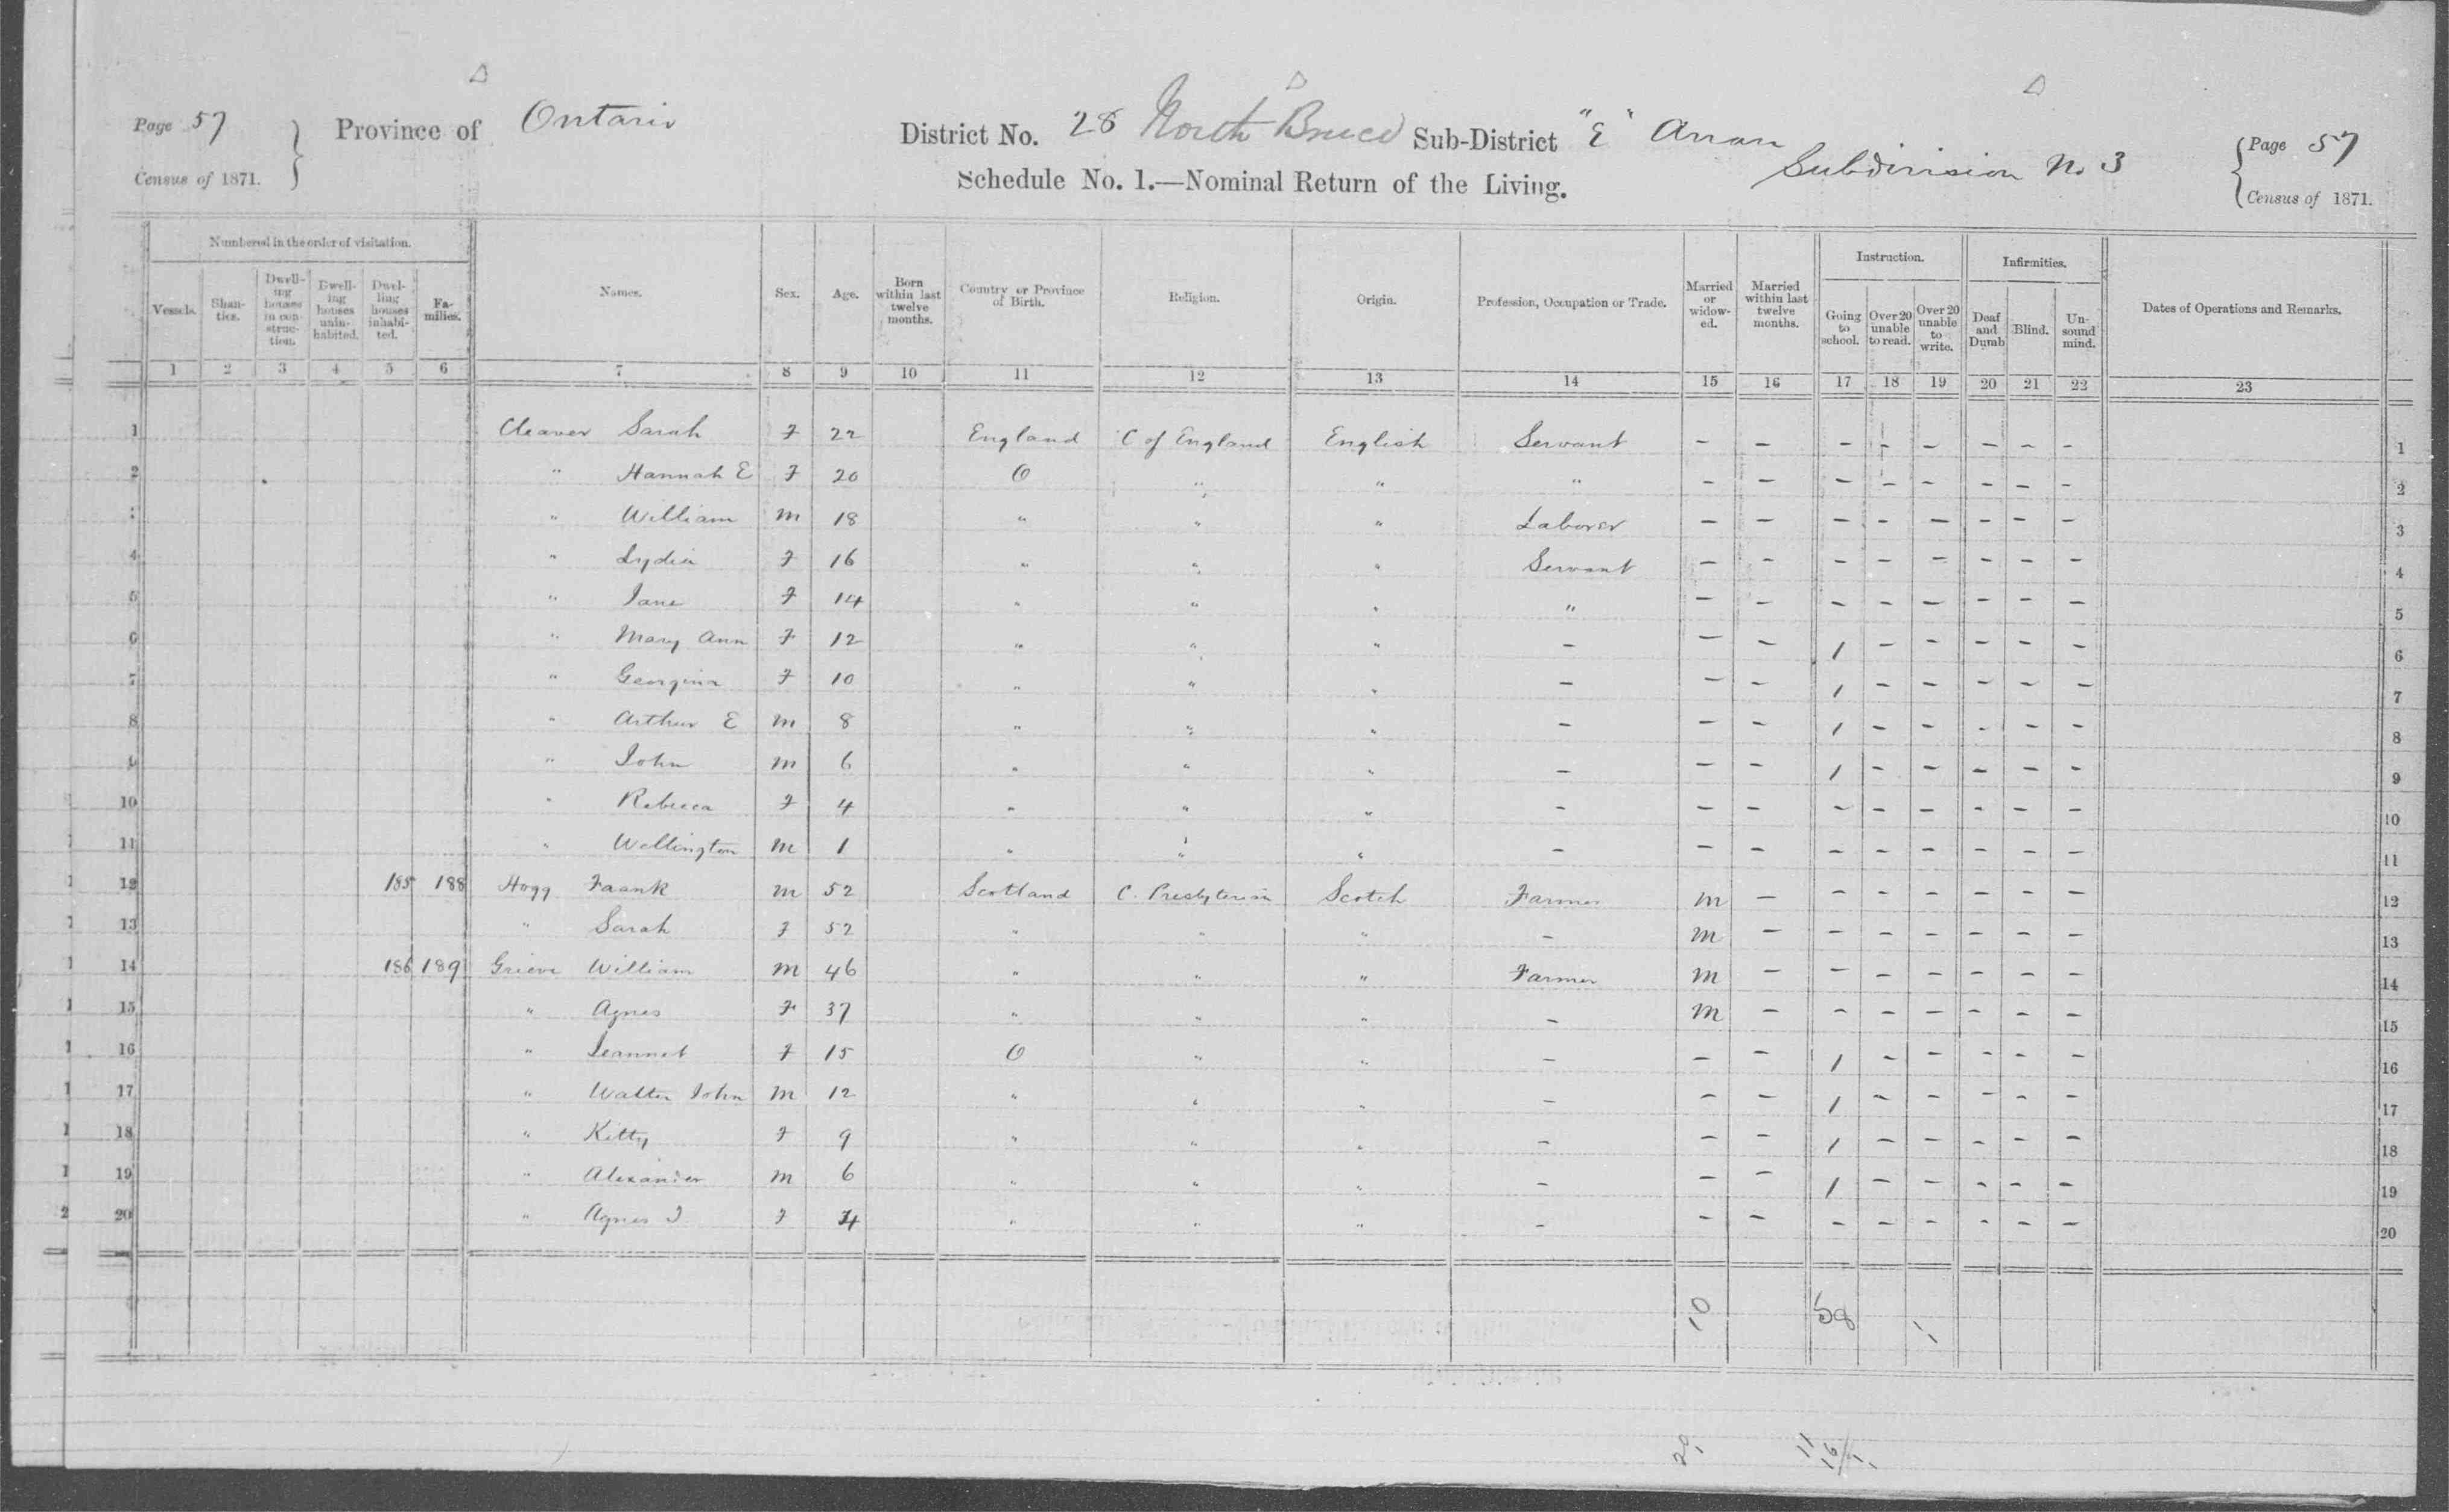 Page 57 Province of Ontario District No. 28 North Bruce Sub-District "E" Arran Page 57
Census of 1871. Schedule No. 1.—Nominal Return of the Living. Subdivision No 3 Census of 1871.
Numbered in the order of visitation. Instruction. Infirmities.
Vessels. Shanties. Dwelling houses in construction. Dwelling houses uninhabited. Dwelling houses inhabited. Families. Names. Sex. Age. Born within last twelve months. Country or Province of Birth. Religion. Origin. Profession, Occupation or Trade. Married or widowed. Married within last twelve months. Going to school. Over 20 unable to read. Over 20 unable to write. Deaf and Dumb Blind. Unsound mind. Dates of Operations and Remarks.
1 2 3 4 5 6 7 8 9 10 11 12 13 14 15 16 17 18 19 20 21 22 23
1 Cleaver Sarah F 22 England C of England English Servant - - - - - - - - 1
2 " Hannah E F 20 O " " " - - - - - - - - 2
" William M 18 " " " Laborer - - - - - - - - 3
4 " Lydia F 16 " " " Servant - - - - - - - - 4
5 " Jane F 14 " " " " - - - - - - - - 5
6 " Mary Ann F 12 " " " - - - 1 - - - - - 6
7 " Georgina F 10 " " " - - - 1 - - - - - 7
8 " Arthur E M 8 " " " - - - 1 - - - - - 8
9 " John M 6 " " " - - - 1 - - - - - 9
10 " Rebecca F 4 " " " - - - - - - - - - 10
11 " Wellington M 1 " " " - - - - - - - - - 11
12 185 188 Hogg Faank M 52 Scotland C. Presbyterian Scotch Farmer M - - - - - - - 12
13 " Sarah F 52 " " " - M - - - - - - - 13
14 186 189 Grieve William M 46 " " " Farmer M - - - - - - - 14
15 " Agnes F 37 " " " - M - - - - - - - 15
16 " Jeannet F 15 O " " - - - 1 - - - - - 16
17 " Walter John M 12 " " " - - - 1 - - - - - 17
18 " Kitty F 9 " " " - - - 1 - - - - - 18
19 " Alexander M 6 " " " - - - 1 - - - - - 19
20 " Agnes J F 4 " " " - - - - - - - - - 20
10